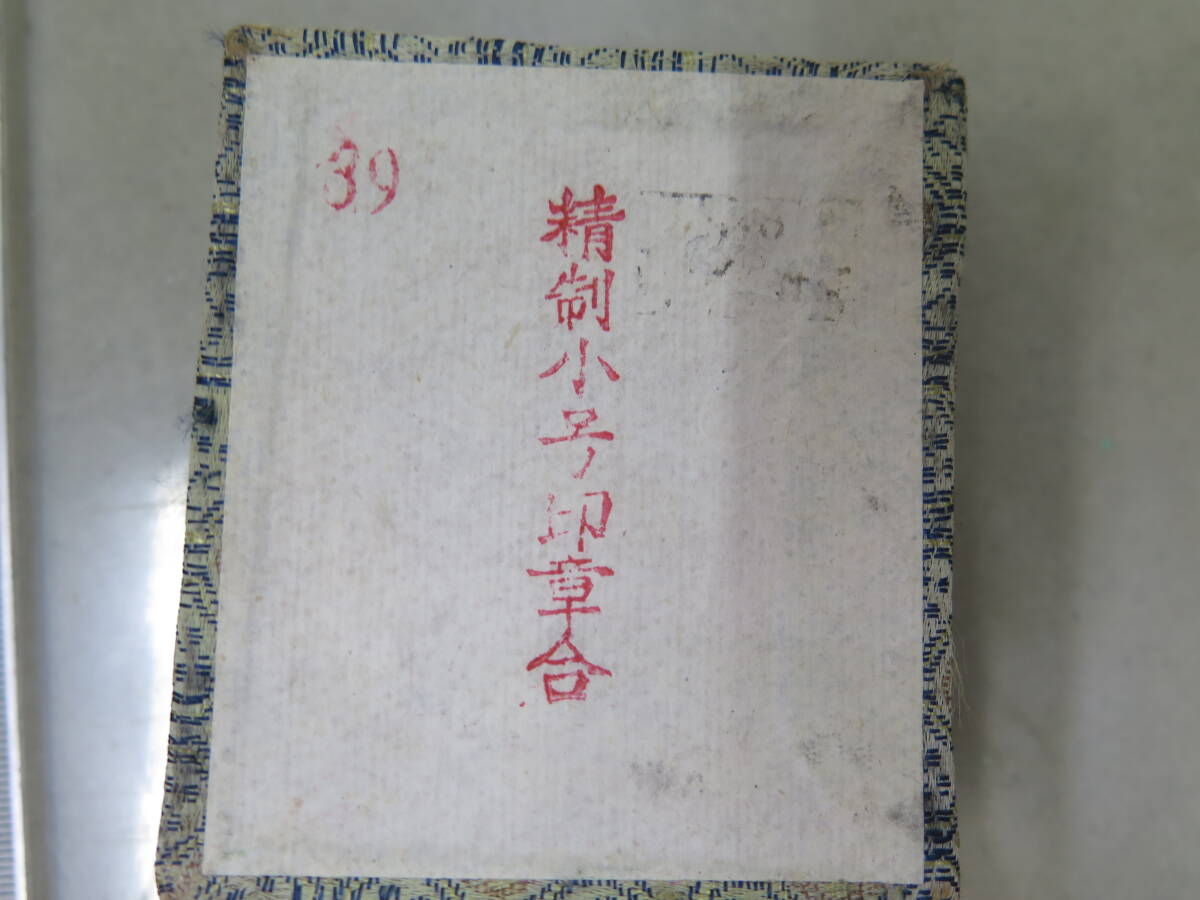 39
精制小号印章合